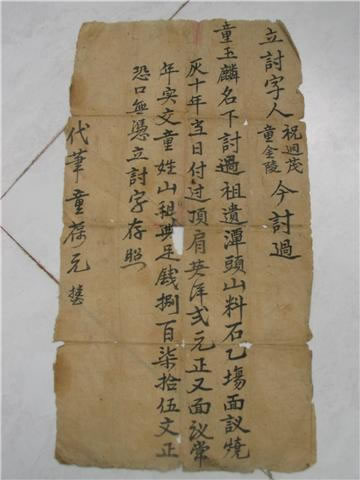 立討字人祝週茂童金陵今討過
童玉麟名下討過祖遺潭頭山料石乙塲面議燒
灰十年當日付过頂肩英洋弍元正又面议常
年实交童姓山租典足錢捌百柒拾伍文正
恐口無憑立討字存照
代筆童葆元